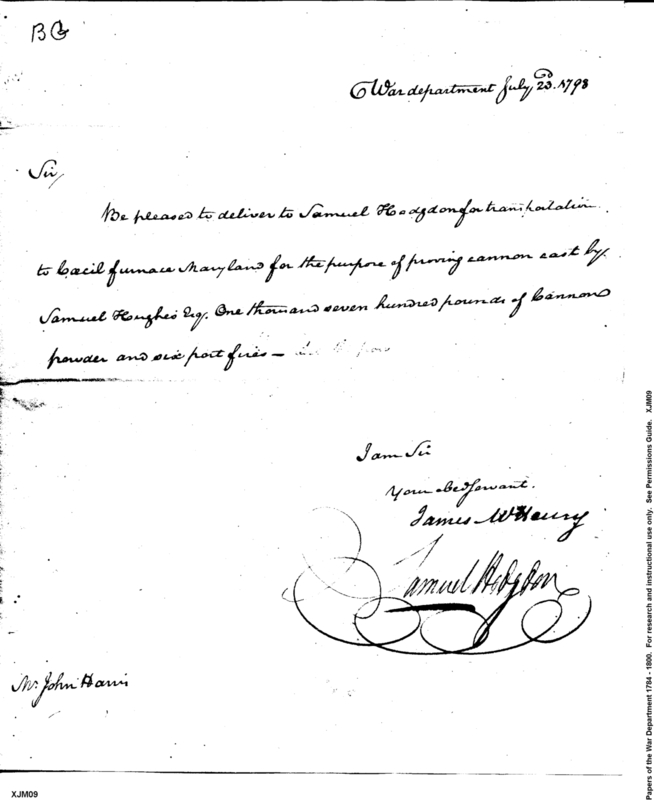 BG
War department July 23d. 1798
Sir,
Be pleased to deliver to Samuel Hodgdon for transportation
to Cecil furnace Maryland for the purpose of proving cannon cast by
Samuel Hughes Esq. One thousand seven hundred pounds of Cannon
powder and six port fires —
I am Sir
Your obed servant.
James McHenry
Samuel Hodgdon
Mr. John Harris
XJM09
Papers of the War Department 1784 - 1800. For research and instructional use only. See Permissions Guide. XJM09